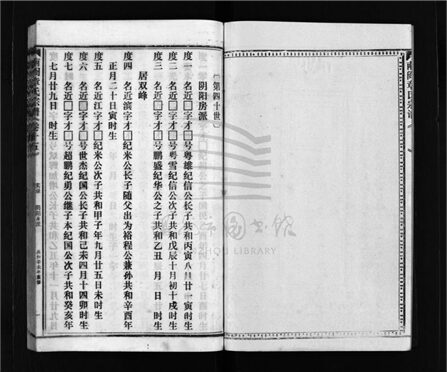 ︹第四十世︺
阴阳房派
度一 名近□字才□号粤雄纪信公长子共和丙寅八月廿一寅时生
度二 名近□字才□号粤雪纪信公次子共和戊辰十月初十戌时生
度三 名近□字才□号鹏盛纪华公之子共和乙丑 月 日 时生
居双峰
度四 名近滨字才□纪米公长子随父出为裕程公兼孙共和辛酉年
正月二十日寅时生
度五 名近江字才□纪米公次子共和甲子年九月廿五日未时生
度六 名近□字才□号世杰纪国公长子共和己未四月十四卯时生
度七 名近□字才□号超鹏纪勇公继子本纪国公次子共和癸亥年
七月廿九日 时生
南阁章氏宗谱